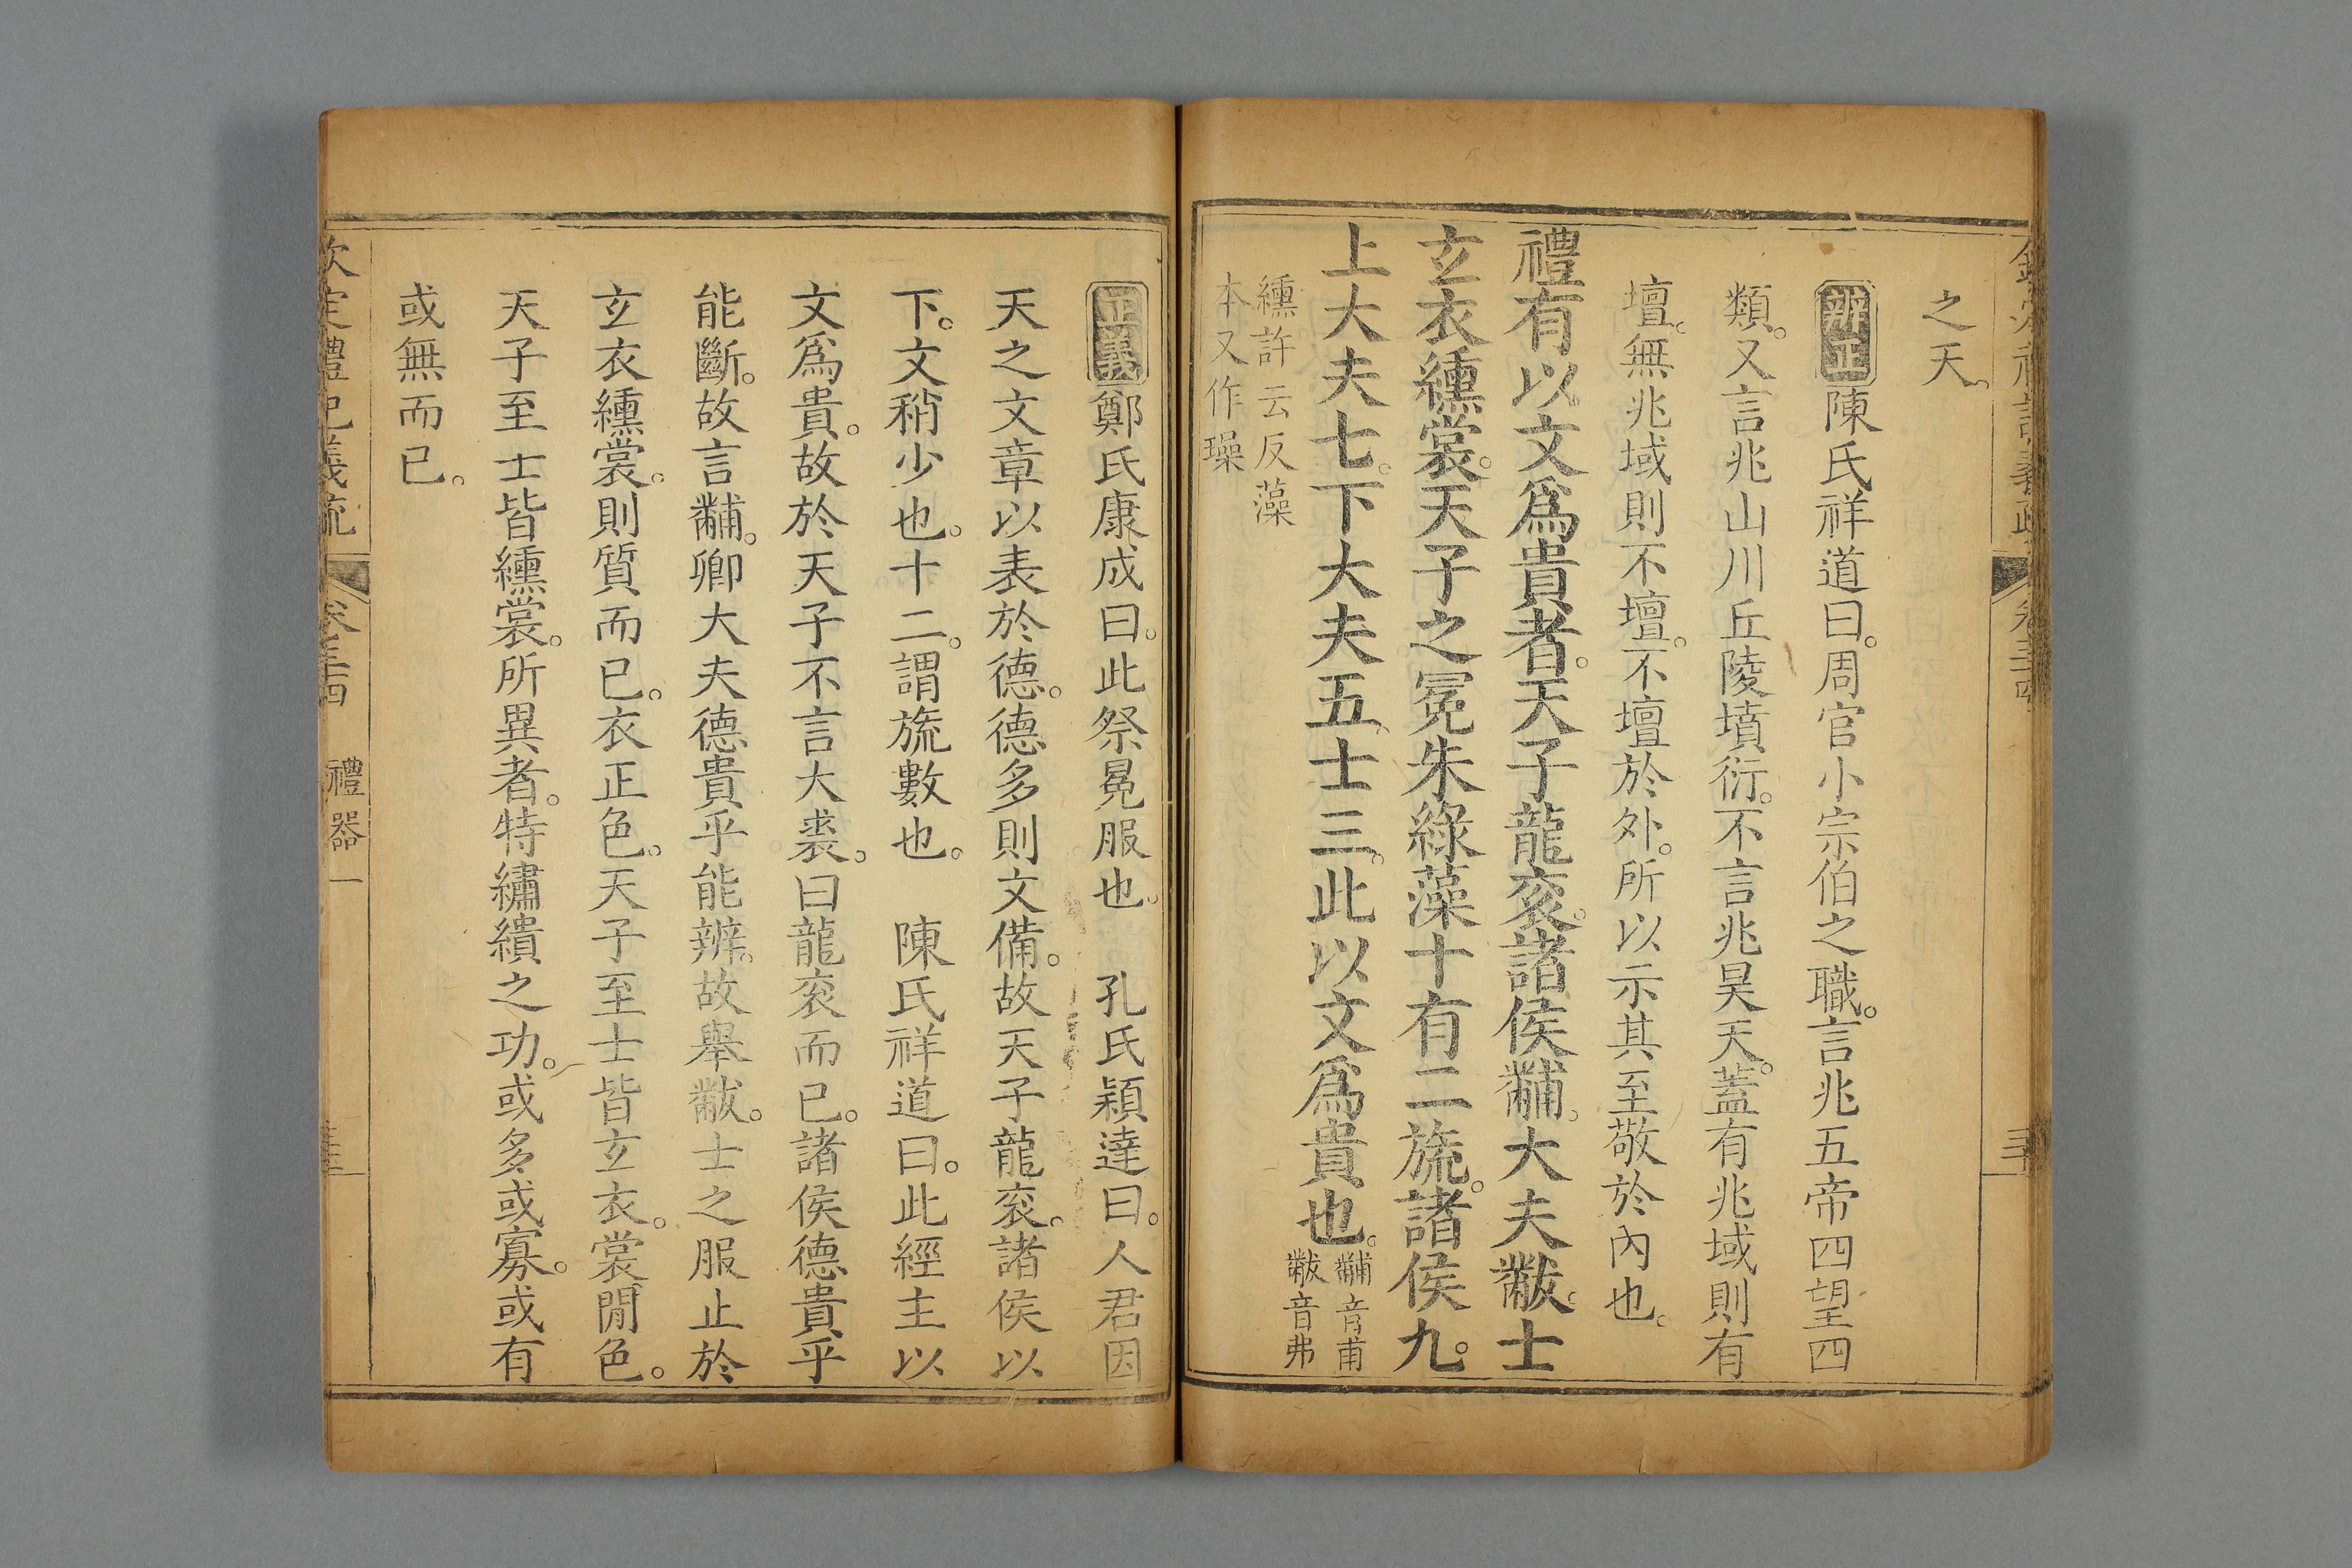 之天。
辨正陳氏祥道曰。周官小宗伯之職。言兆五帝四望四
類。又言兆山川丘陵墳衍。不言兆昊天。蓋有兆域則有
壇。無兆域則不壇。不壇於外。所以示其至敬於內也。
禮有以文爲貴者。天子龍衮。諸侯黼。大夫黻。士
玄衣纁裳。天子之冕朱綠藻十有二旒。諸侯九。
上大夫七。下大夫五。士三。此以文爲貴也。黼音甫
黻音弗
纁許云反藻
本又作璪
正義鄭氏康成曰。此祭冕服也。 孔氏穎達曰。人君因
天之文章以表於德。德多則文備。故天子龍衮。諸侯以
下。文稍少也。十二。謂旒數也。 陳氏祥道曰。此經主以
文爲貴。故於天子不言大裘。曰龍衮而已。諸侯德貴乎
能斷。故言黼。卿大夫德貴乎能辨。故舉黻。士之服止於
玄衣纁裳。則質而已。衣正色。天子至士皆玄衣。裳閒色。
天子至士皆纁裳。所異者。特繡繢之功。或多或寡。或有
或無而已。
欽定禮記義疏 卷三十四 禮器一